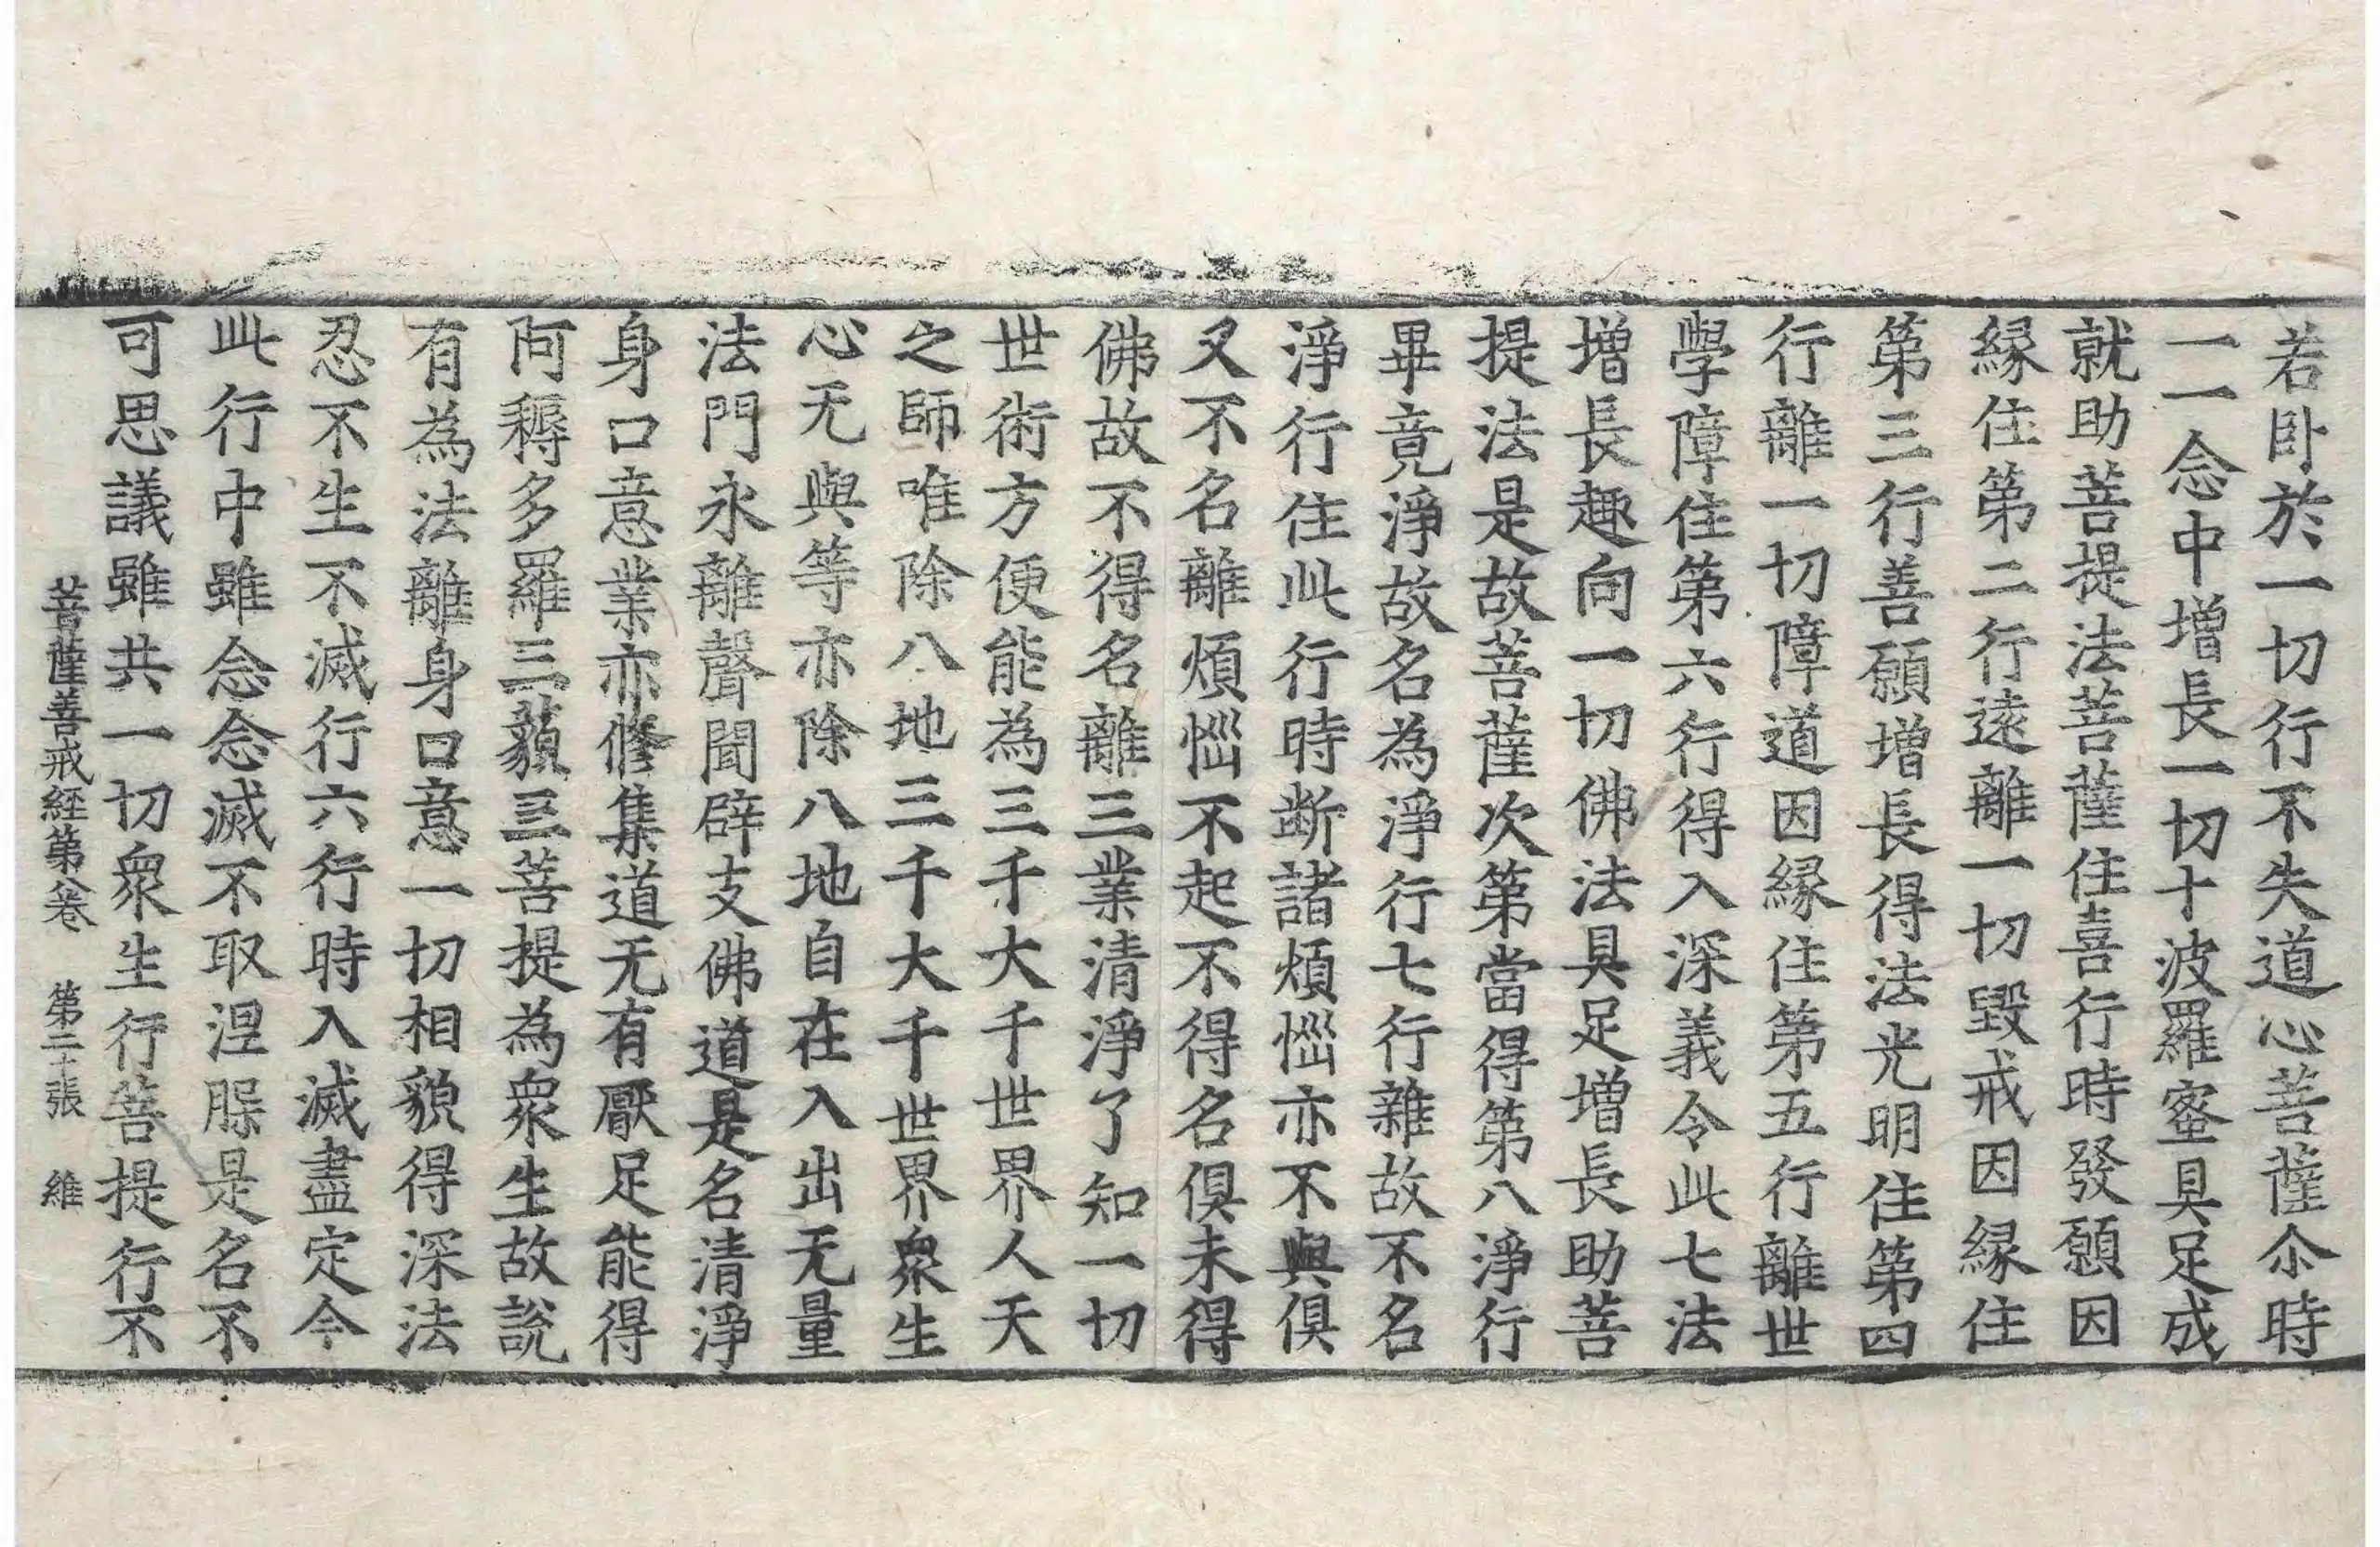 若卧於一切行不失道心菩薩尒時
一一念中增長一切十波羅蜜具足成
就助菩提法菩薩住喜行時發願因
緣住第二行遠離一切毀戒因緣住
第三行善願增長得法光明住第四
行離一切障道因緣住第五行離世
學障住第六行得入深義令此七法
增長趣向一切佛法具足增長助菩
提法是故菩薩次第當得第八淨行
畢竟淨故名為淨行七行雜故不名
淨行住此行時断諸煩惱亦不與俱
又不名離煩惱不起不得名俱未得
佛故不得名離三業清淨了知一切
世術方便能為三千大千世界人天
之師唯除八地三千大千世界衆生
心无與等亦除八地自在入出无量
法門永離聲聞辟支佛道是名清淨
身口意業亦修集道无有厭足能得
阿耨多羅三藐三菩提為衆生故說
有為法離身口意一切相貌得深法
忍不生不滅行六行時入滅盡定今
此行中雖念念滅不取涅槃是名不
可思議雖共一切衆生行菩提行不
菩薩善戒経第八卷 第二十張 維